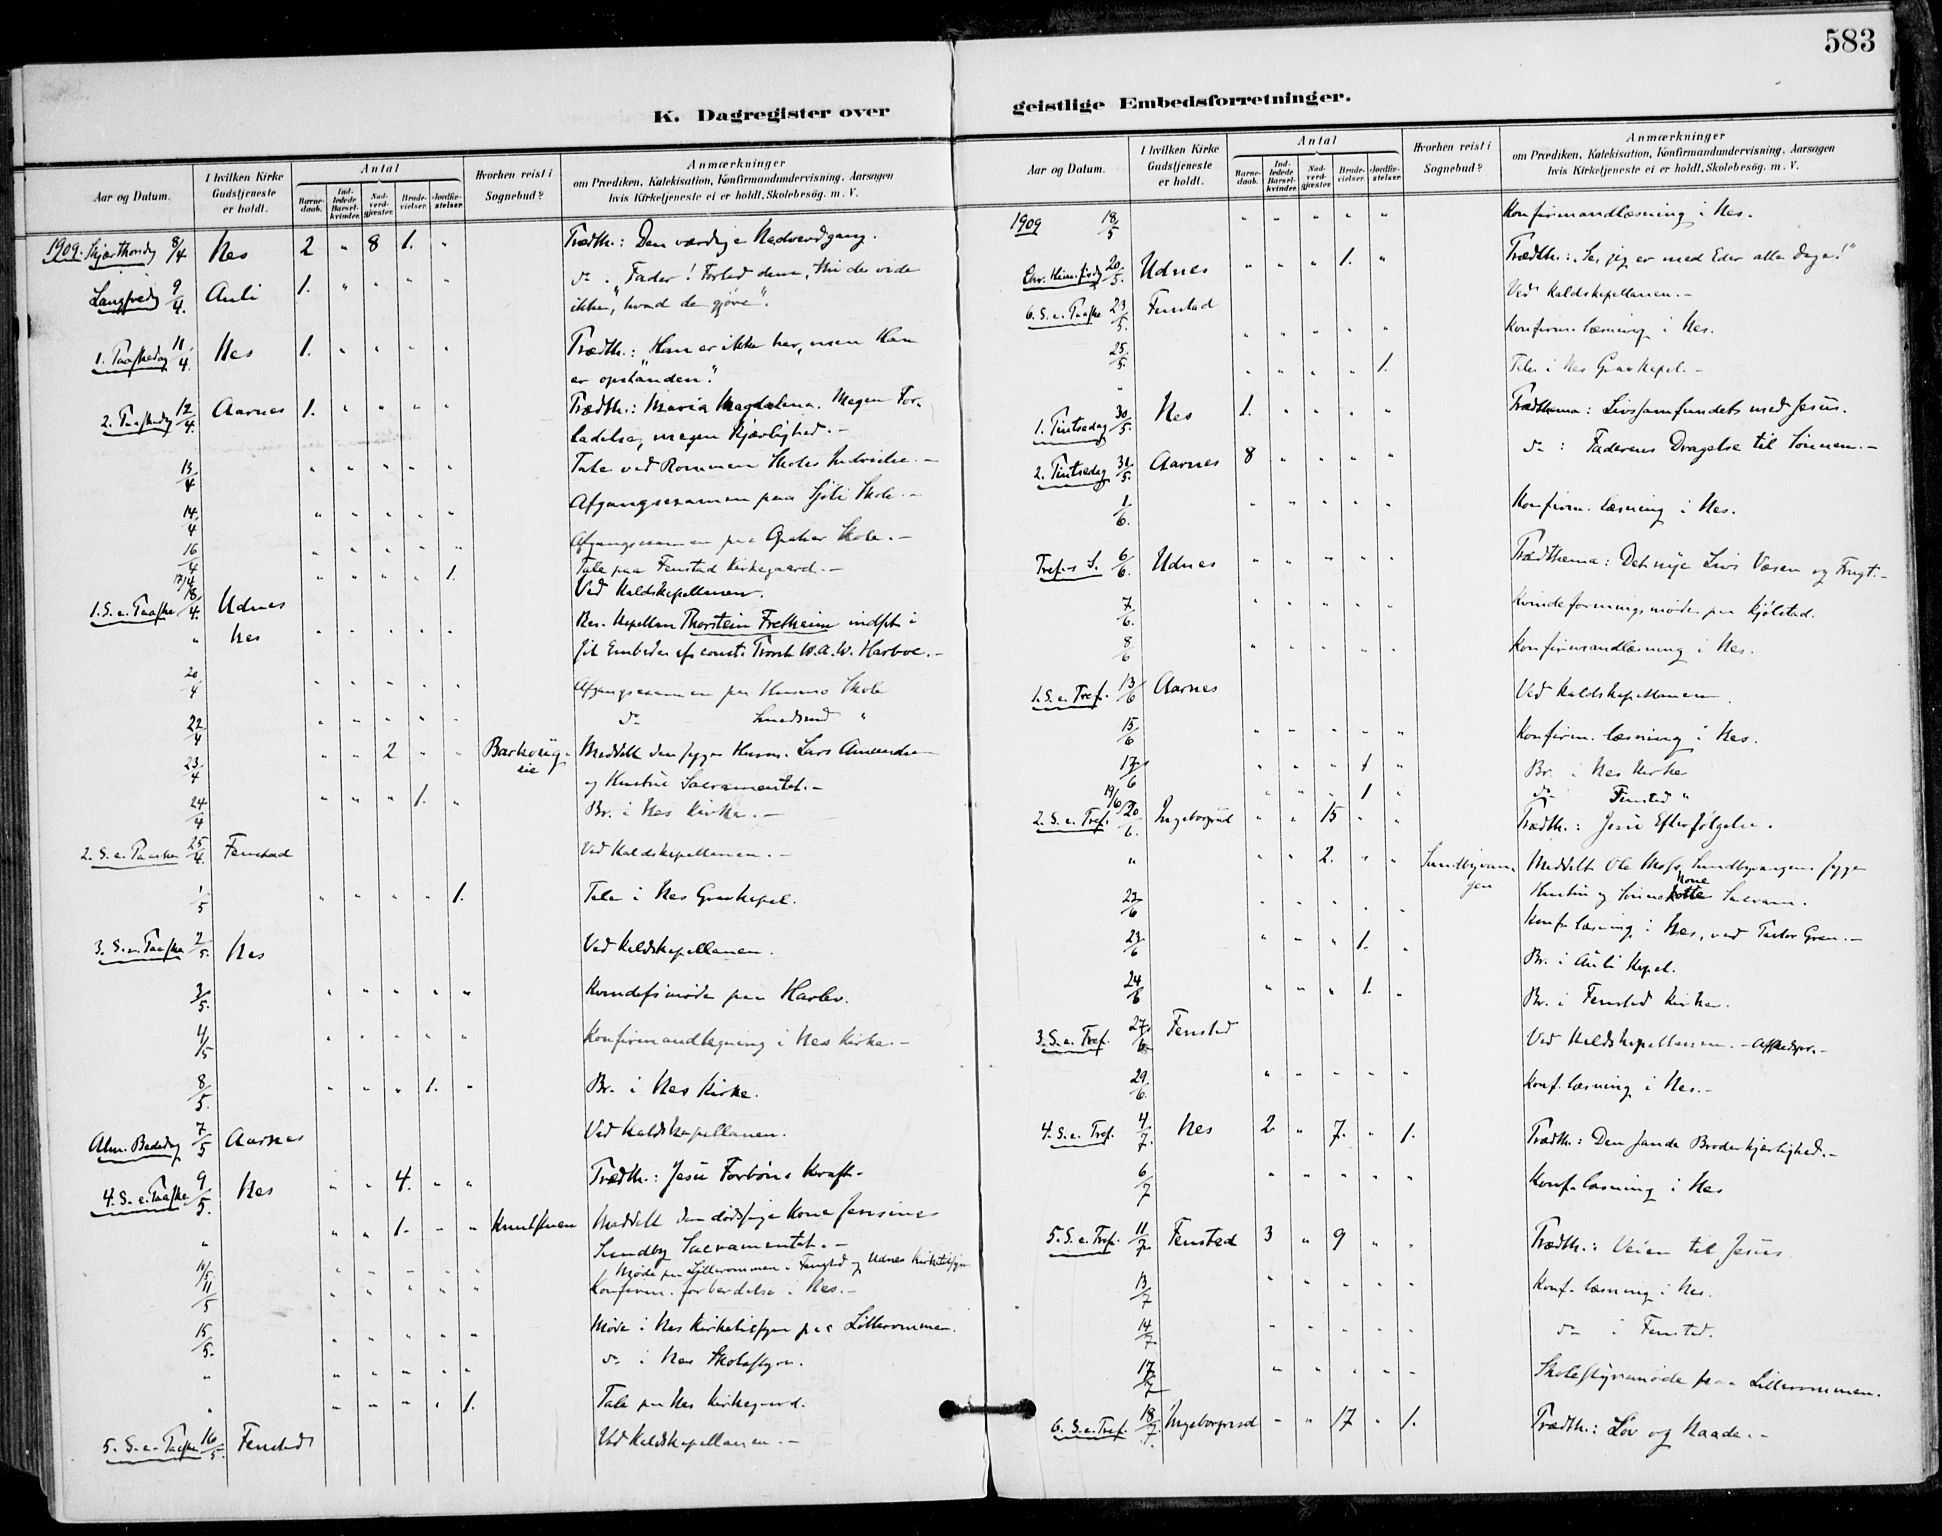 583
K. Dagregister over
geistlige Embedsforretninger.
Aar og Datum.
I hvilken Kirke Gudstjeneste er holdt.
Antal
Barnedaab.
Indledede Barselkvinder.
Nadverdgjæster.
Brudevielser.
Jordfæstelser.
Hvorhen reist i Sognebud?
Anmærkninger
om Prædiken, Katekisation, Konfirmandundervisning, Aarsagen
hvis Kirketjeneste ei er holdt, Skolebesøg. m. V.
1909. Skjærthorsdg 8/4 Nes 2 " 8 1. " Prædth.: Den værdige Nadverdgang.
Langfredg 9/4. Auli 1. " " " " do : Fader! Forlad dem, thi de vide
ikke, hvad de gjøre".
1. Paaskedag 11/4. Nes 1. " " " " Prædth.: "Han er ikke her, men Han
er opstanden".
2. Paaskedag 12/4. Aarnes 1. " " " " Prædth.: Maria Magdalena. Megen For-
ladelse, megen Kjærlighed. -
13/4 " " " " " Tale ved Rommen Skoles Indvielse. -
14/4 " " " " " Afgangsexamen paa Skole. -
16/4 " " " " " Afgangsexamen paa Skole. -
17/4 " " " " 1. Tale paa Fenstad Kirkegaard. -
1. S. e. Paaske 18/4. Udnes Ved Kaldskapellanen.
" Nes " " " " " Res. Kapellan Thorstein Fretheim indsat i
sit Embede af const. Provst W. A. W. Harboe. -
20/4 " " " " " Afgangsexamen paa Skole
22/4 " " " " " do "
23/4 " " 2 " " Meddelt den syge Husm. Lars Amundsen
og Hustru Sacramentet. -
24/4 " " " 1. " Br. i Nes Kirke. -
2. S. e. Paaske 25/4. Fenstad Ved Kaldskapellanen. -
1/5 " " " " 1. Tale i Nes Gravkapel.
3. S. e. Paaske 2/5. Nes Ved Kaldskapellanen.
3/5. " " " " " paa Harlev.
4/5 " " " " " Konfirmandlæsning i Nes Kirke. -
8/5. " " " 1. " Br. i Nes Kirke.
Alm. Bededag 7/5 Aarnes Ved Kaldskapellanen.
4. S. e. Paaske 9/5. Nes " " 4. " " Prædth.: Jesu Forbøns Kraft -
" " " 1. " " Meddelt den dødssyge Kone Jensine
Sundby Sacramentet. -
10/5. " " " " " Møde paa Lillerommen i Fenstad og Udnes Kirketilsyn
11/5 " " " " " Konfirm. forberedelse i Nes. -
15/5. " " " " " Møde i Nes Kirketilsyn paa Lillerommen.
" " " " " " do i Nes Skolestyre.
" " " " " 1. Tale paa Nes Kirkegaard.
5. S. e. Paaske 16/5. Fenstad Ved Kaldskapellanen. -
Aar og Datum.
I hvilken Kirke Gudstjeneste er holdt.
Antal
Barnedaab.
Indledede Barselkvinder.
Nadverdgjæster.
Brudevielser.
Jordfæstelser.
Hvorhen reist i Sognebud?
Anmærkninger
om Prædiken, Katekisation, Konfirmandundervisning, Aarsagen
hvis Kirketjeneste ei er holdt, Skolebesøg. m. V.
1909 18/5 " " " " " Konfirmandlæsning i Nes.
Chr. Him. fardg 20/5. Udnes " " " 1. " Prædth.: "Se, jeg er med Eder alle Dage!"
6. S. e. Paaske 23/5. Fenstad Ved Kaldskapellanen. -
25/5. " " " " " Konfirm. læsning i Nes.
" " " " " 1. Tale i Nes Gravkapel. -
1. Pintsedag 30/5. Nes 1. " " " " Prædthema: Livssamfundets med Jesus.
2. Pintsedag 31/5. Aarnes 8 " " " " do : Faderens Dragelse til Sønnen. -
1/6. " " " " " Konfirm. læsning i Nes.
Tref.s S. 6/6. Udnes " " " " " Prædthema: Det nye Livs Væsen og Frugt. -
7/6. " " " " " Kvindeforeningsmøde paa Kjølstad.
8/6 " " " " " Konfirmandlæsning i Nes.
1. S. e. Tref. 13/6 Aarnes Ved Kaldskapellanen.
15/6 " " " " " Konfirm. læsning i Nes.
17/6 " " " 1 " Br. i Nes Kirke
19/6 " " " 1 " do Fenstad "
2. S. e. Tref. 20/6. Ingeborgrud " " 15 " " Prædth.: Jesu Efterfølgelse.
" " " 2. " " Sundbyvangen Meddelt Ole Sundbyvangens syge
Hustru og Sønne kone Sacram.
22/6 " " " " " Konf. læsning i Nes, ved Pastor Gren. -
23/6 " " " 1. " Br. i Auli Kapel.
24/6 " " " 1. " Br. i Fenstad Kirke.
3. S. e. Tref. 27/6 Fenstad Ved Kaldskapellanen. - Afskedspr. -
29/6. " " " " " Konf. læsning i Nes. -
4. S. e. Tref. 4/7. Nes 2 " 7. " 1. Prædth.: Den sande Broderkjærlighed. -
6/7 " " " " " Konf. læsning i Nes
5. S. e. Tref. 11/7. Fenstad 3 " 9 " " Prædth.: Veien til Jesus.
13/7 " " " " " Konf. læsning i Nes.
14/7 " " " " " do i Fenstad.
17/7 " " " " " Skolestyremøde paa Lillerommen.
6. S. e. Tref. 18/7. Ingeborgrud " " 17 " 1. Prædth.: Lov og Naade. -